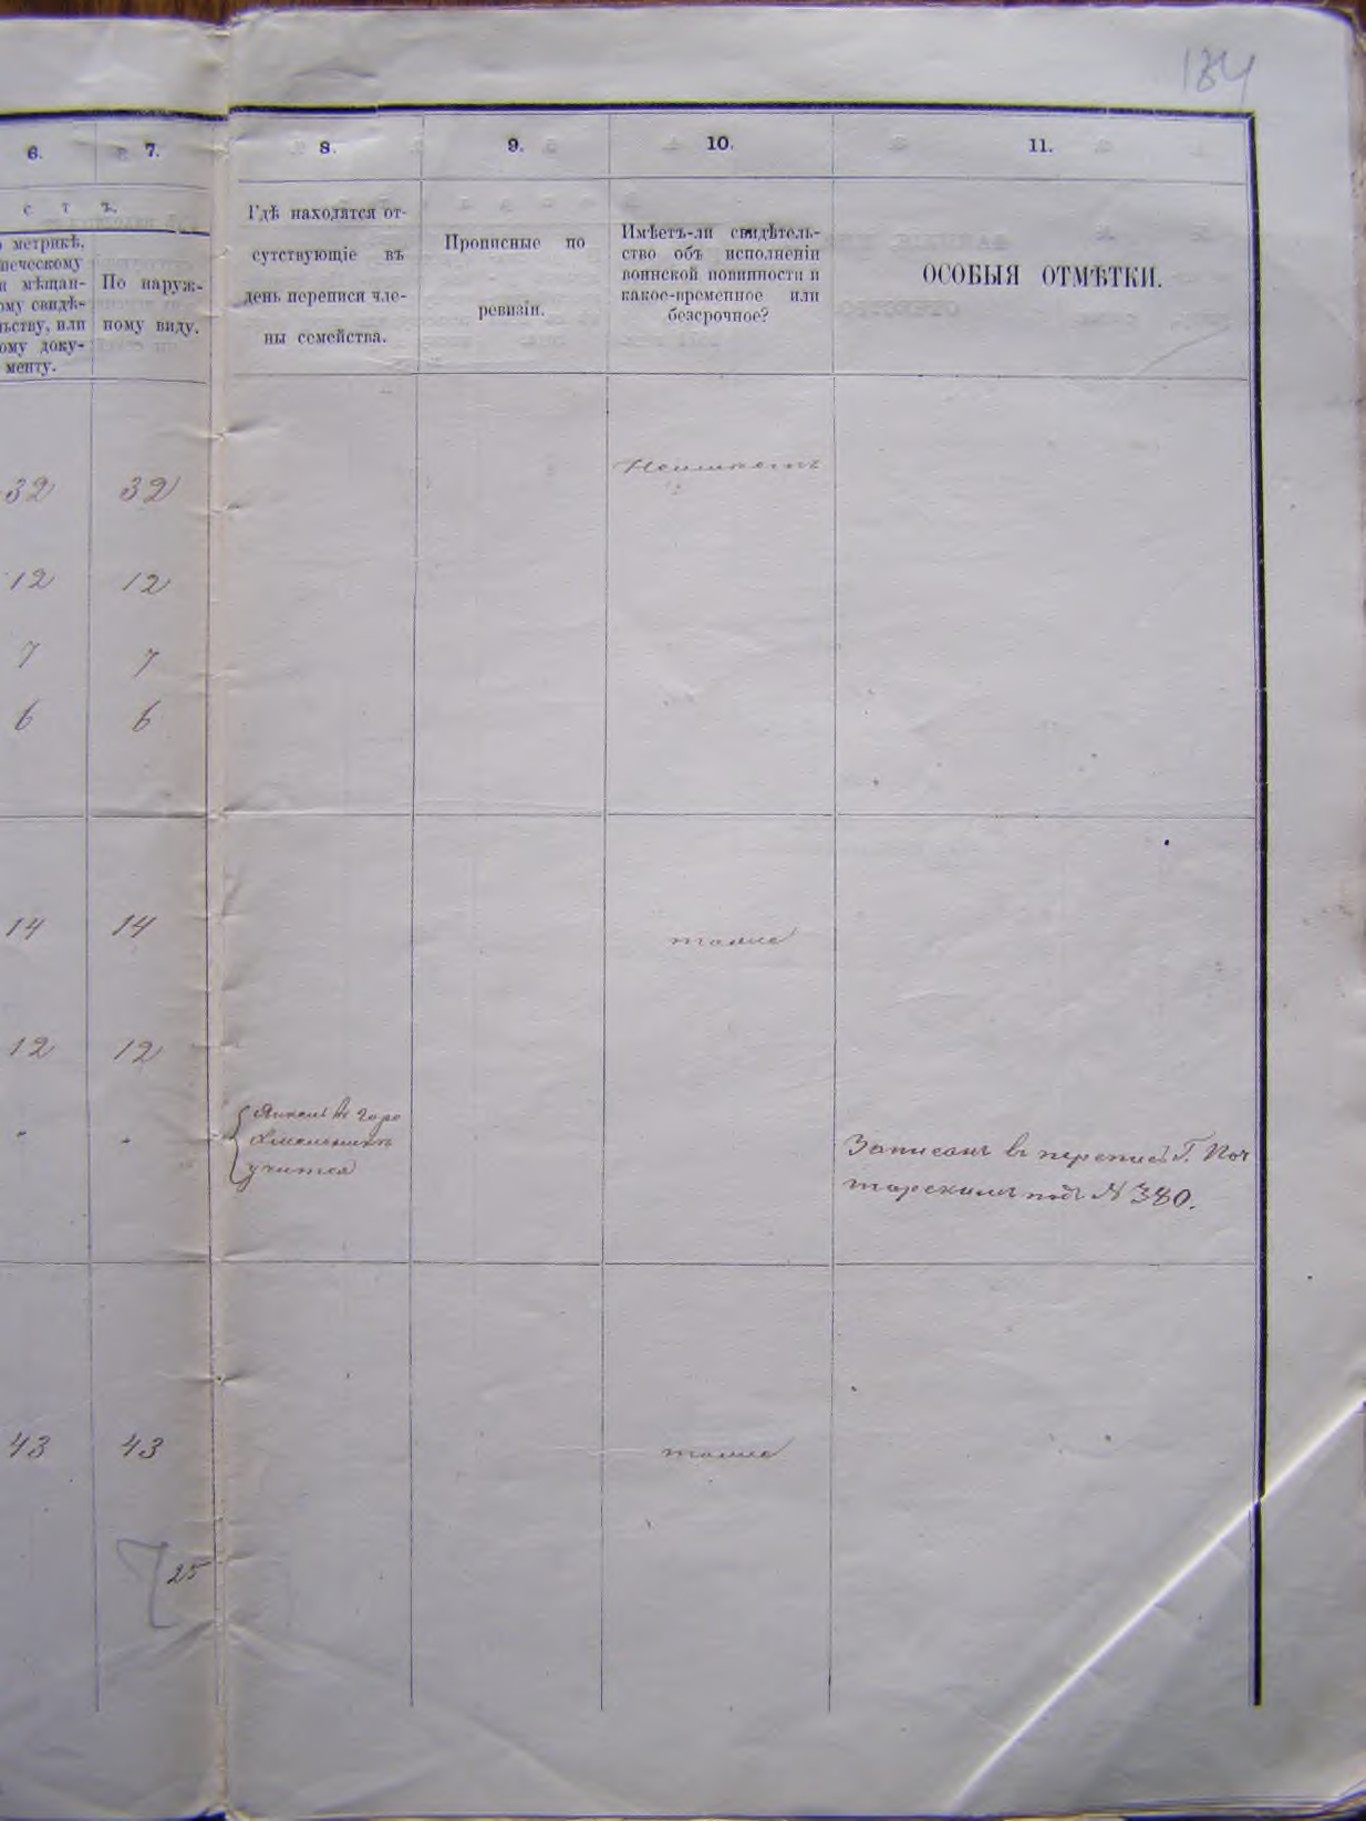 184
6. 7. 8. 9. 10. 11.
с т ъ.
метрикѣ,
печескому
и мѣщан-
ому свидѣ-
льству, или
ому доку-
менту.
По наруж-
ному виду.
Гдѣ находятся от-
сутствующіе въ
день переписи чле-
ны семейства.
Прописные по
ревизіи.
Имѣетъ-ли свидѣтель-
ство объ исполненіи
воинской повинности и
какое-временное или
безсрочное?
ОСОБЫЯ ОТМѢТКИ.
Неимѣетъ
32 32
12 12
7 7
6 6
14 14
тоже
12 12
въ горо
учится
Записанъ въ переписъ Г. Поч
тарскимъ подъ № 380.
43 43
тоже
25